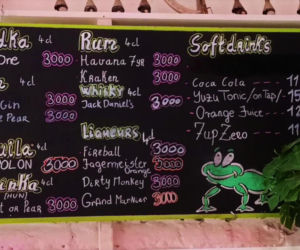 Rum 4cl
Havana 7yr 3000
Kraken 3000
Whisky 4cl
Jack Daniel's 3000
Liqueurs 4cl
Fireball 3000
Jagermeister 3000
Orange
Dirty Monkey 3000
Grand Marnier 3000
4cl
3000
4cl
Gin 3000
Pear 3000
3000
(HUN)
or Pear 3000
Softdrinks
Coca Cola
Yuzu Tonic/on Tap/
Orange Juice
7up Zero